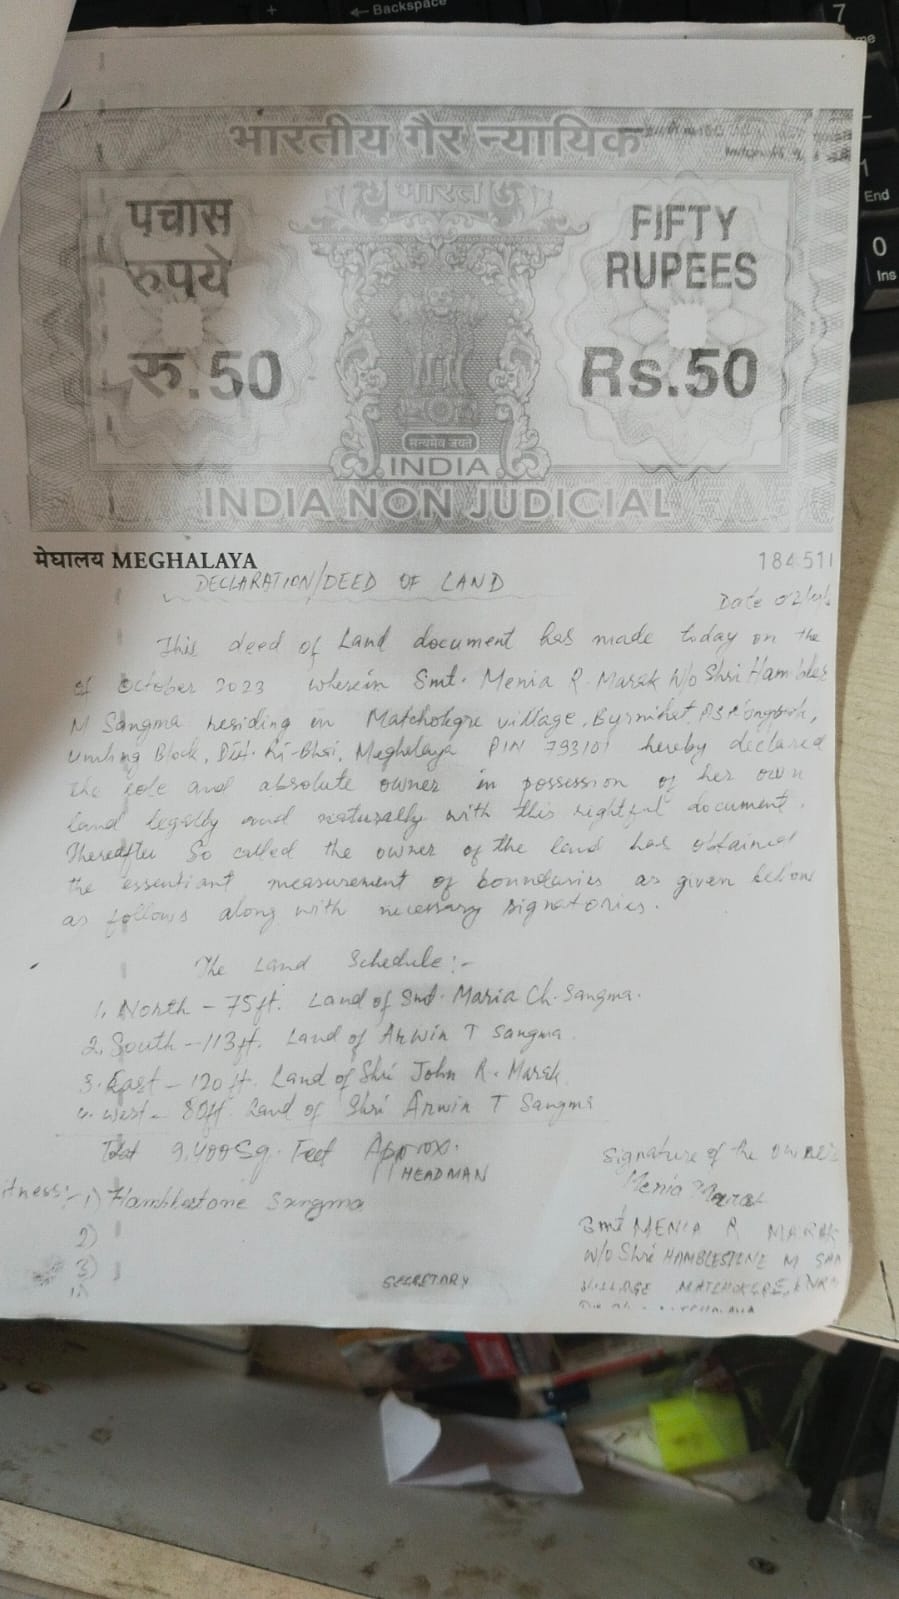 ← Backspace
7
1
End
0
Ins
भारतीय गैर न्यायिक
भारत
पचास
रुपये
रु.50
FIFTY
RUPEES
Rs.50
सत्यमेव जयते
INDIA
INDIA NON JUDICIAL
मेघालय MEGHALAYA
184511
DECLARATION/DEED OF LAND
Date 02/10/
This deed of Land document has made today on the
of October 2023 wherein Smt. Menia R. Marak W/o Shri Hambles
M Sangma residing in Matchokgre village, Byrnihat, PS
Umling Block, Dist. Ri-Bhoi, Meghalaya PIN 793101 hereby declared
the sole and absolute owner in possession of her own
land legally and naturally with this rightful document.
Thereafter So called the owner of the land has obtained
the essentiant measurement of boundaries as given below
as follows along with necessary signatories.
The Land Schedule:-
1. North - 75ft. Land of Smt. Maria Ch. Sangma.
2. South - 113ft. Land of Arwin T Sangma.
3. East - 120 ft. Land of Shri John R. Marak
4. West - 80ft. Land of Shri Arwin T Sangma
Total 9,400 Sq. Feet Approx.
HEADMAN
Signature of the owner
Menia Marak
itness:- 1) Hamblestone Sangma
2)
3)
Smt MENIA R MARAK
W/o Shri HAMBLESTONE M SAN
VILLAGE MATCHOKGRE,
SECRETARY